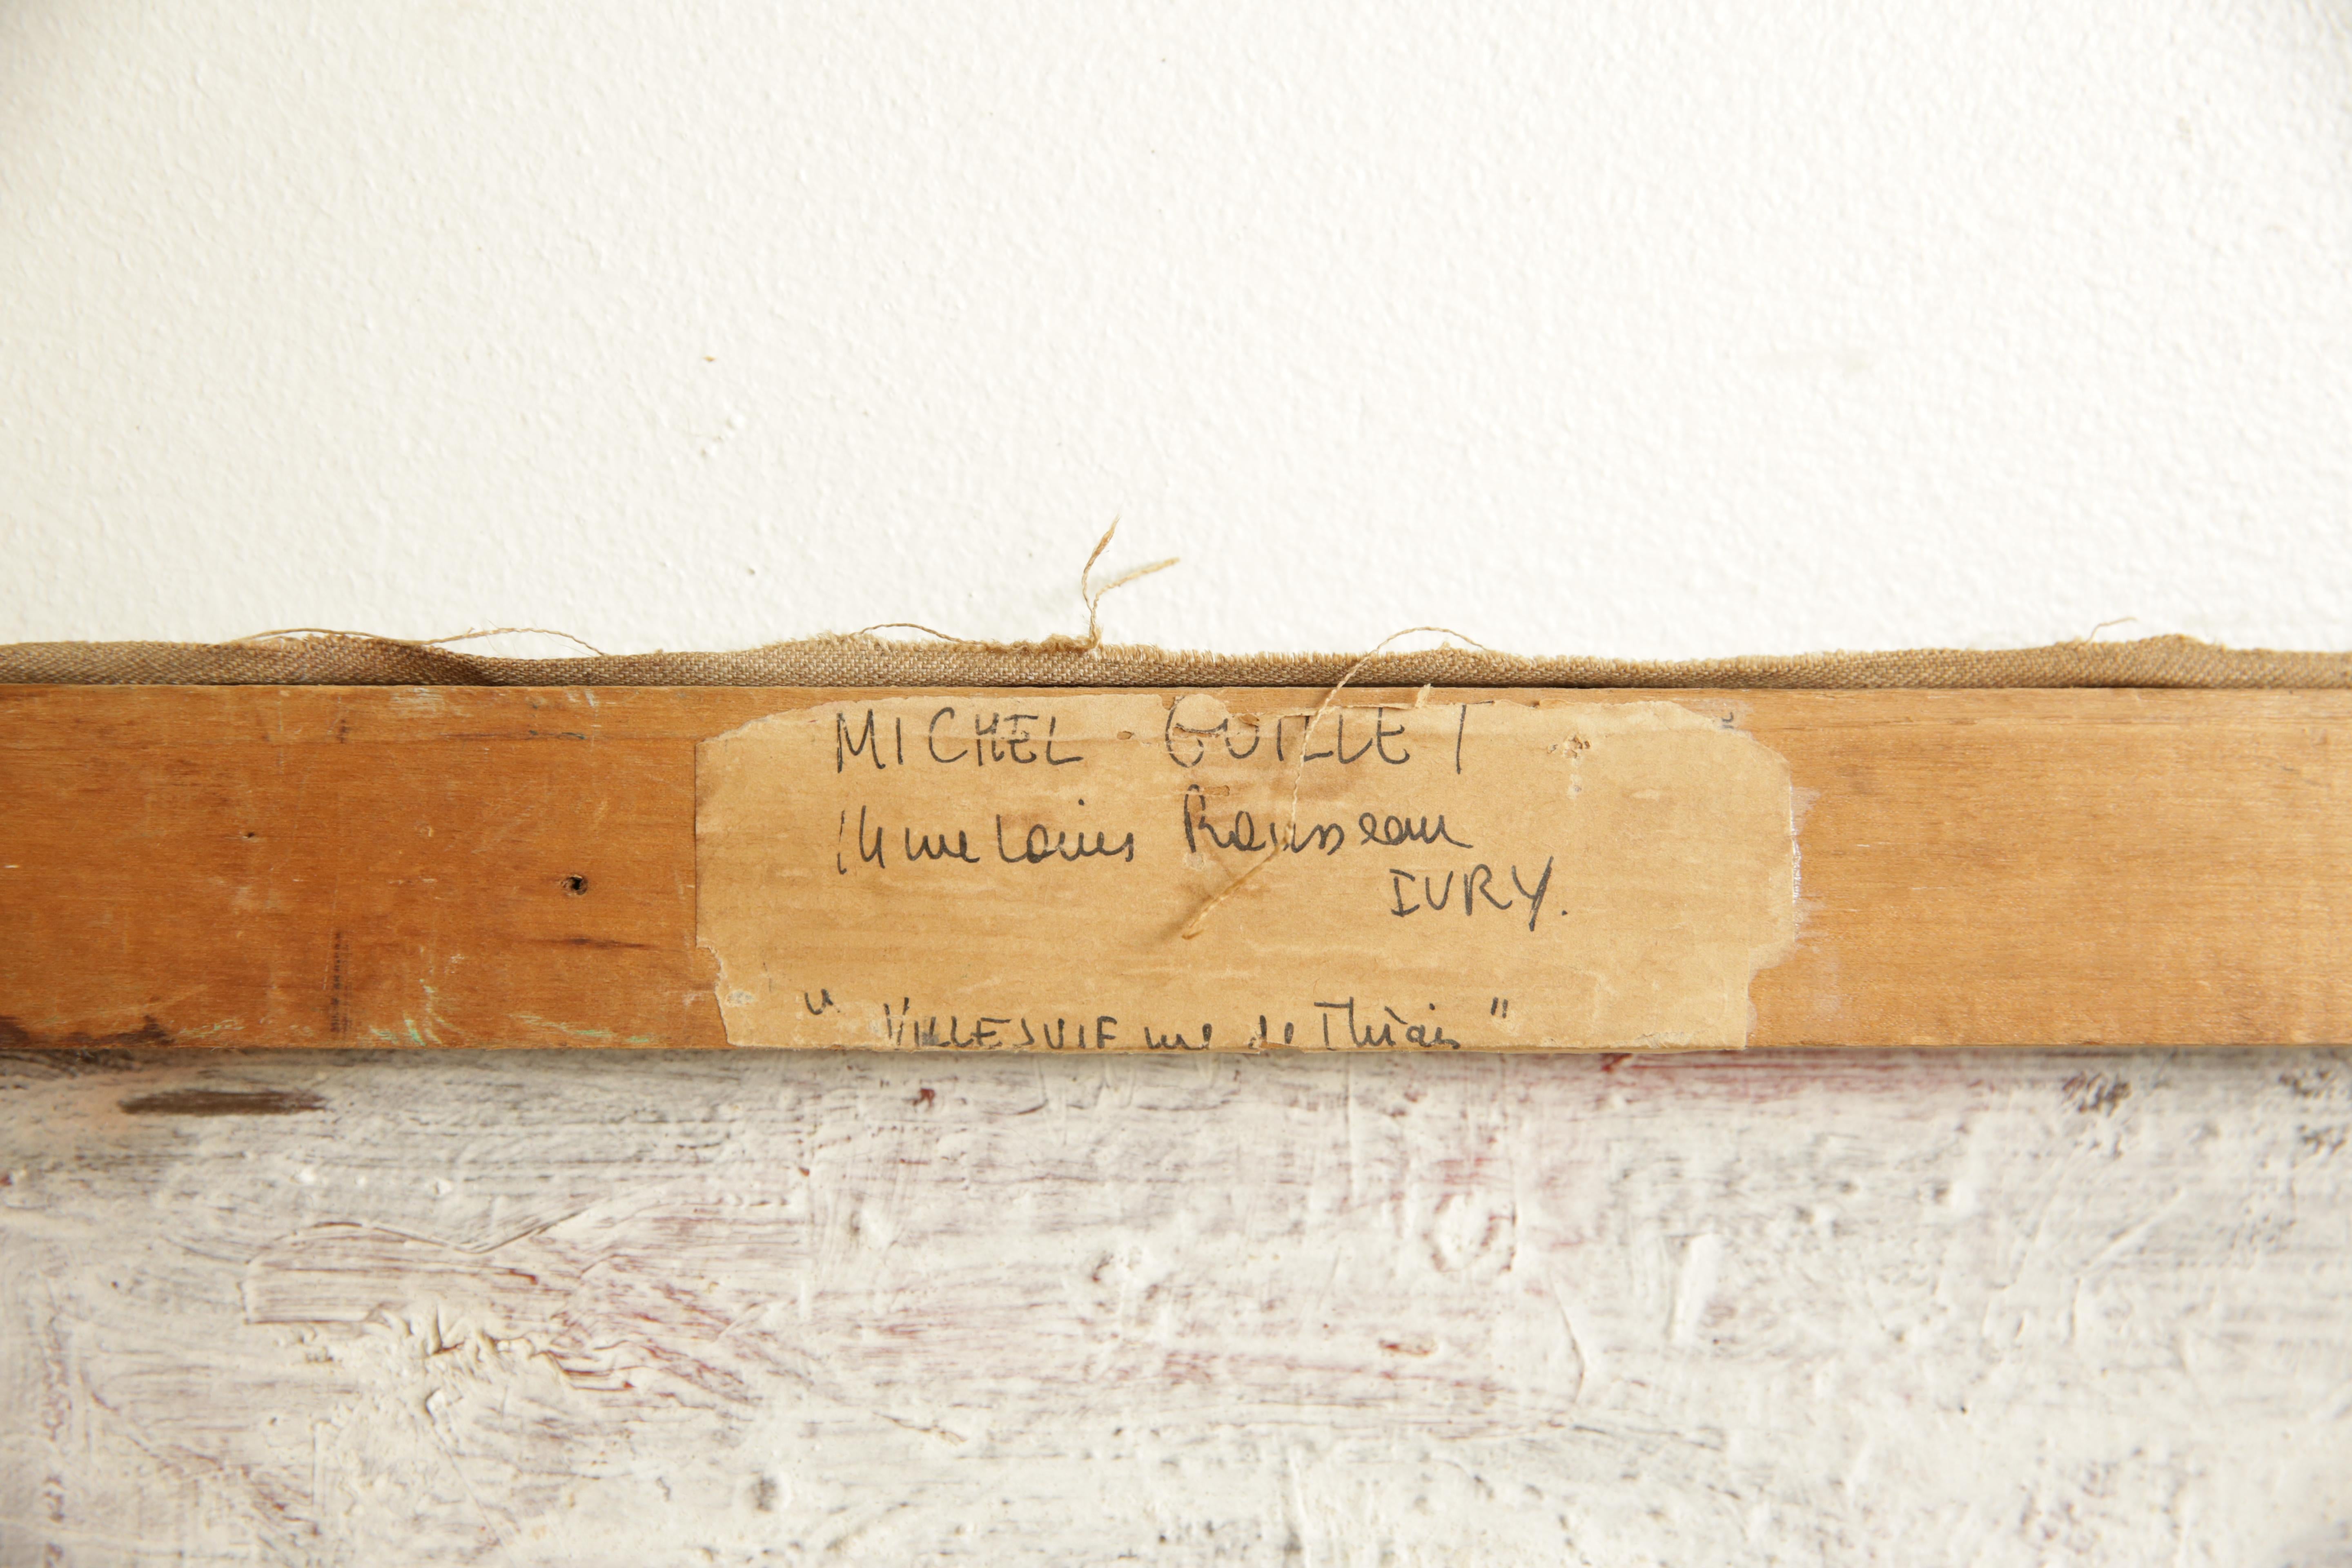 MICHEL - GUILLET
14 rue Louis Rousseau
IVRY.
" VILLEJUIF rue de Thiais "